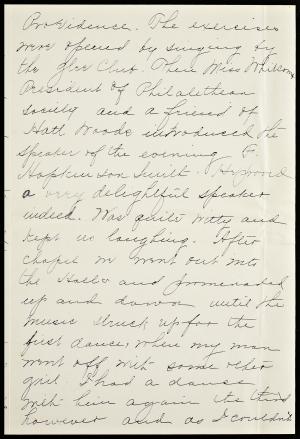 Providence. The exercises
were opened by singing by
the Glee Club. Then Miss
President of Philalethean
society and a friend of
Hatt Woods introduced the
speaker of the evening F.
Hopkinson Smith. He proved
a very delightful speaker
indeed. Was quite witty and
kept us laughing. After
chapel we went out into
the Halls and promenaded
up and down until the
music struck up for the
first dance, when my man
went off with some other
girl. I had a dance
with him again the third
however and as I couldn't